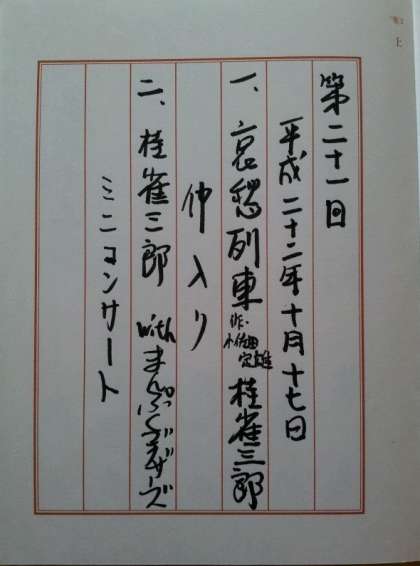 上
第二十一日
平成二十二年十月十七日
一、哀愁列車 作・小佐田定雄 桂雀三郎
仲入り
二、桂雀三郎 withまんぷくブラザーズ
ミニコンサート